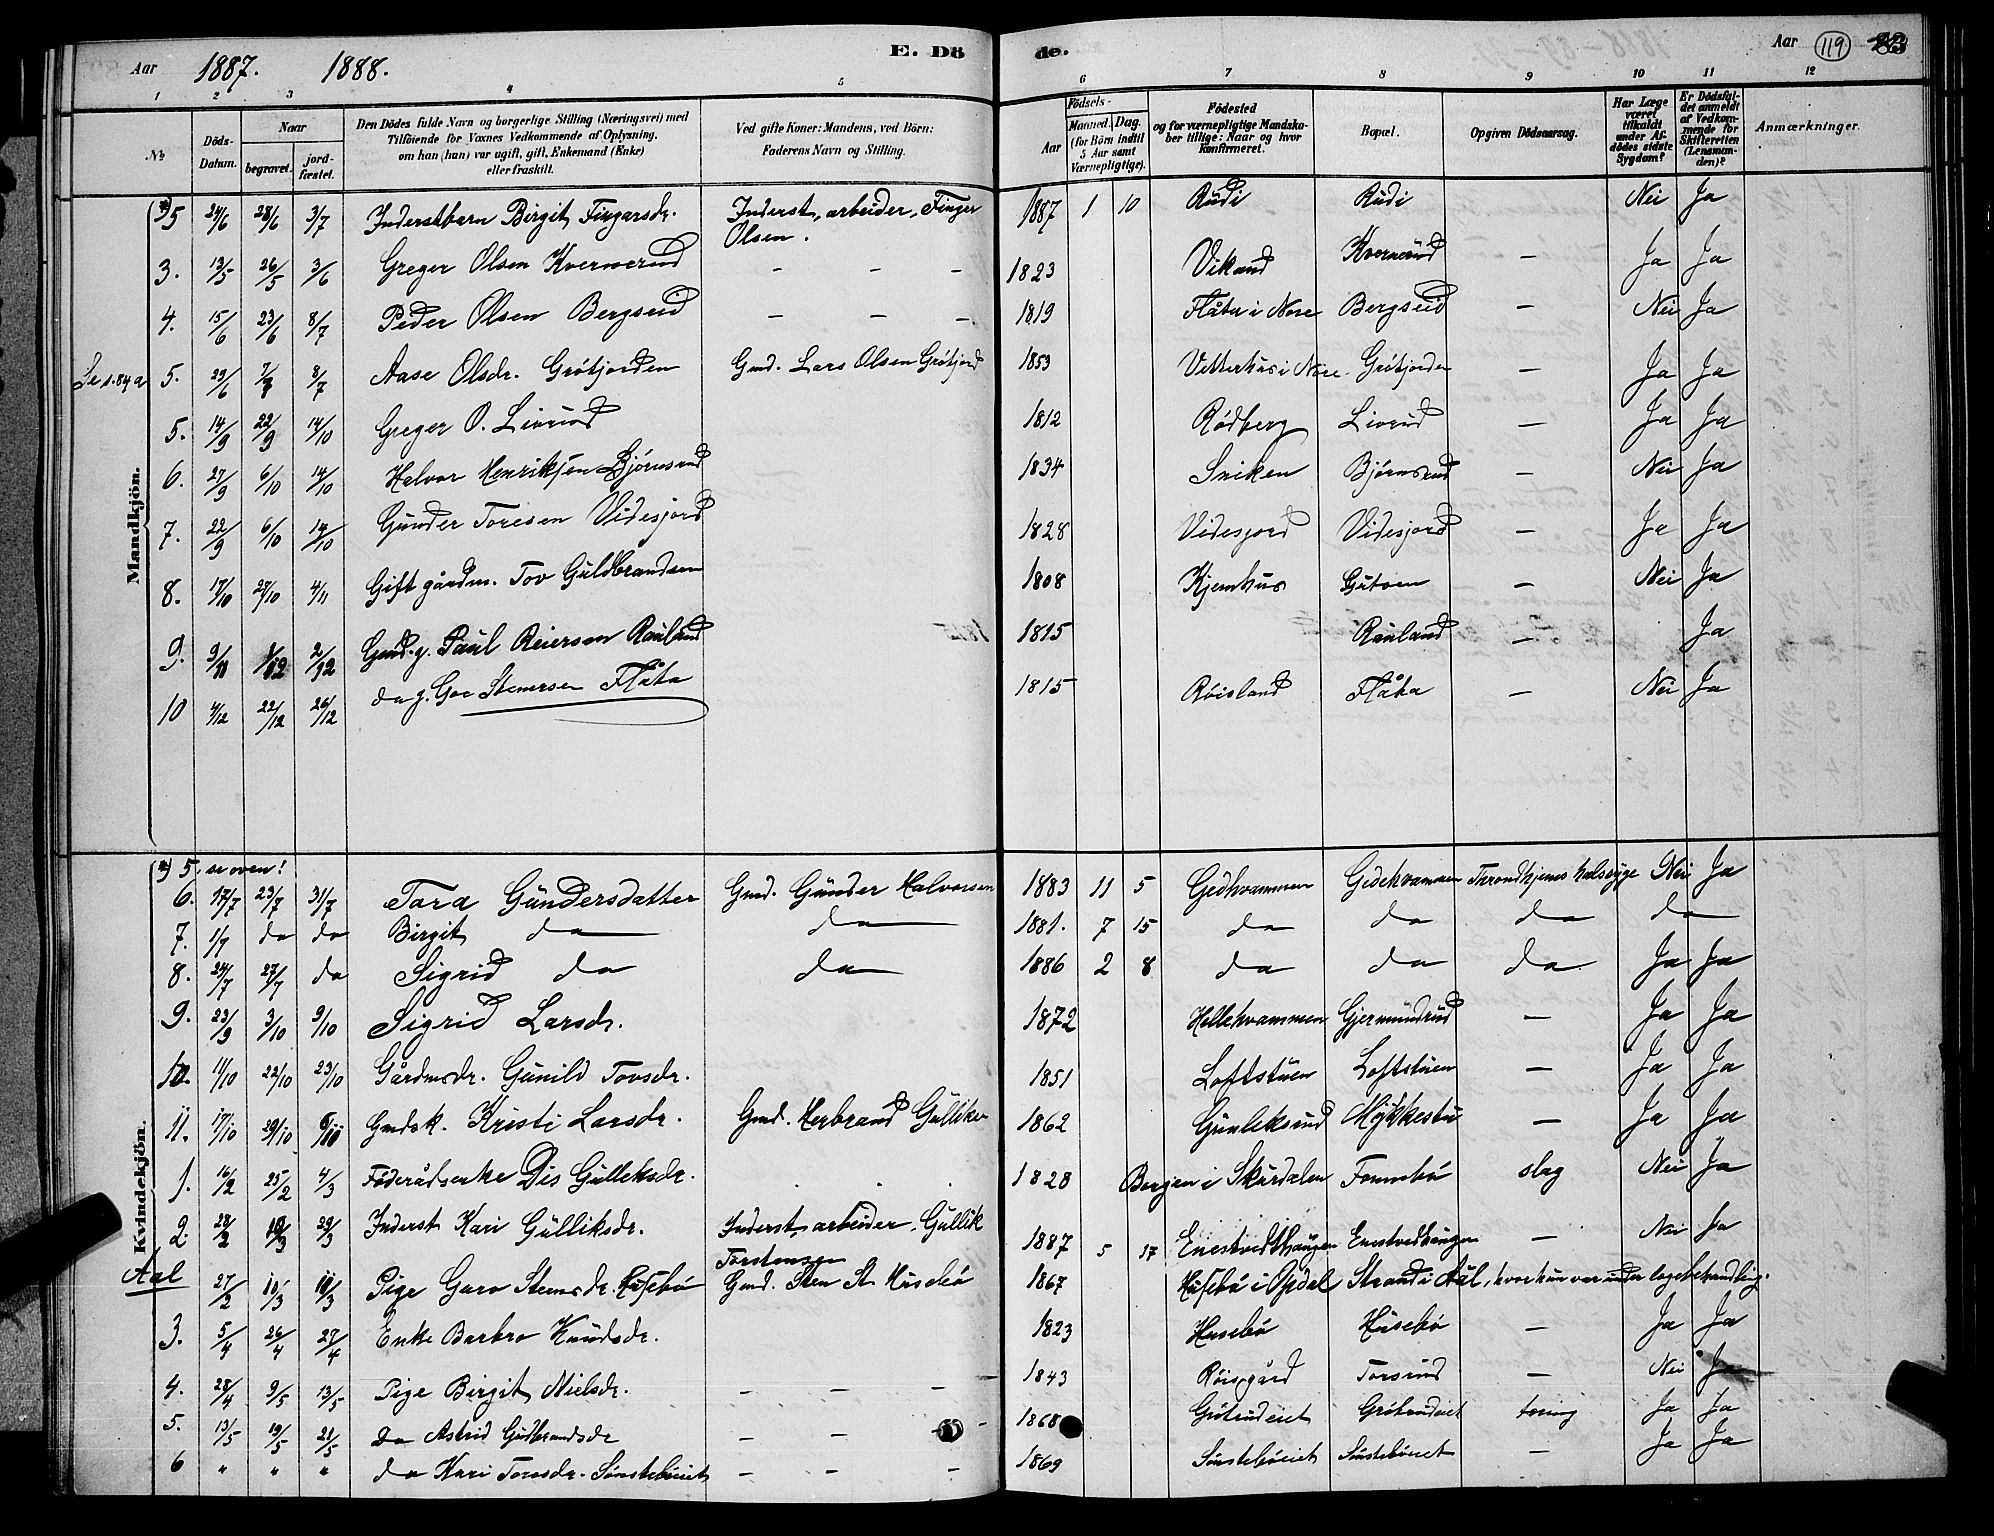 Aar 1887. 1888. E. Dö de. Aar 119 83
1 2 3 4 5 6 7 8 9 10 11 12
№ Döds-Datum. Naar begravet. jordfæstet. Den Dödes fulde Navn og borgerlige Stilling (Næringsvei) med Tilföiende for Voxnes Vedkommende af Oplysning, om han (hun) var ugift, gift, Enkemand (Enke) eller fraskilt. Ved gifte Koner: Mandens, ved Börn: Faderens Navn og Stilling. Födsels- Aar Maaned. Dag. (for Börn indtil 5 Aar samt Værnepligtige). Födested og for værnepligtige Mandskaber tillige: Naar og hvor konfirmeret. Bopæl. Opgiven Dödsaarsag. Har Læge været tilkaldt under Afdödes sidste Sygdom? Er Dödsfaldet anmeldt af Vedkommende for Skifteretten (Lensmanden)? Anmærkninger.
Mandkjön.
5 24/6 28/6 3/7 Inderstbarn Birgit Fingarsdr. Inderst, arbeider, Finger 1887 1 10 Rudi Rudi Nei Ja
Olsen.
3. 13/5 26/5 3/6 Greger Olsen Kvernerud — — — 1823 Vikand Kvernerud — Ja Ja
4. 15/6 23/6 8/7 Peder Olsen Bergseid — — — 1819 Flåta i Nore Bergseid — Nei Ja
Se s. 84 a 5. 29/6 7/8 8/7 Aase Olsdr. Grötjorden Gmd. Lars Olsen Grötjord 1853 Vetterhus i Nore Grötjorden — Ja Ja
5. 14/9 22/9 14/10 Greger O. Livrud 1812 Rødberg Livrud — Ja Ja
6. 27/9 6/10 14/10 Halvor Henriksen Bjørnsrud 1834 Sniken Bjørnsrud — Nei Ja
7. 22/9 6/10 14/10 Gunder Toresen Videsjord 1828 Videsjord Videsjord — Ja Ja
8. 17/10 27/10 4/11 Gift gårdm. Tov Guldbrandsen 1808 Kjemhus Gutoen — Nei Ja
9. 9/11 1/12 2/12 Gmd. g. Paul Reiersen Rauland 1815 Rauland — Ja
10 4/12 22/12 26/12 da g. Goe Stenersen Flåta 1815 Røisland Flåta — Nei Ja
Kvindekjön.
5. se oven!
6. 17/7 23/7 31/7 Tora Gundersdatter Gmd. Gunder Halvorsen 1883 11 5 Gedhvammen Gedehvammen Trondhjems halssyge Nei Ja
7. 1/7 do do Birgit do do 1881. 7 15 do do do do
8. 24/7 27/7 do Sigrid do do 1886 2 8 do do do Ja Ja
9. 23/9 3/10 9/10 Sigrid Larsdr. 1872 Hellehvammen Gjermundrud — Ja Ja
10. 11/10 22/10 23/10 Gårdmsdr. Gunild Tovsdr. 1851 Loftstuen Loftstuen — Ja Ja
11. 17/10 29/10 6/11 Gmdsk. Kristi Larsdr. Gmd. Herbrand Gulliks 1862 Gunleksrud Mykkestu Ja Ja
1. 16/2 25/2 4/3 Föderådsenke Dis Gulleksdr. 1828 Bergen i Skurdalen Fonnebö slag Nei Ja
2. 28/2 10/3 29/3 Inderst Kari Gulliksdr. Inderst, arbeider, Gullik 1887 5 17 Enestvedthaugen Enestvedhaugen — Nei Ja
Torstensen
Aal 27/2 10/3 10/3 Pige Garo Stensdr. Husebö Gmd. Sten St. Husebö 1867 Husebö i Opdal Strand i Aal, hvor hun var under lægebehandling.
3. 5/4 26/4 27/4 Enke Barbro Knudsdr. 1823 Husebö Husebö — Ja Ja
4. 28/4 9/5 13/5 Pige Birgit Nielsdr. — — — 1843 Röisgård Torsrud — Nei Ja
5. 13/5 19/5 21/5 Do Astrid Gudbrandsdr — — — 1868 Grötrudeiet Grötrudeiet tæring Ja Ja
6 " " " do Kari Toresdr. Sønstebøeiet — — — 1869 Sønstebøeiet Sønstebøeiet — Ja Ja